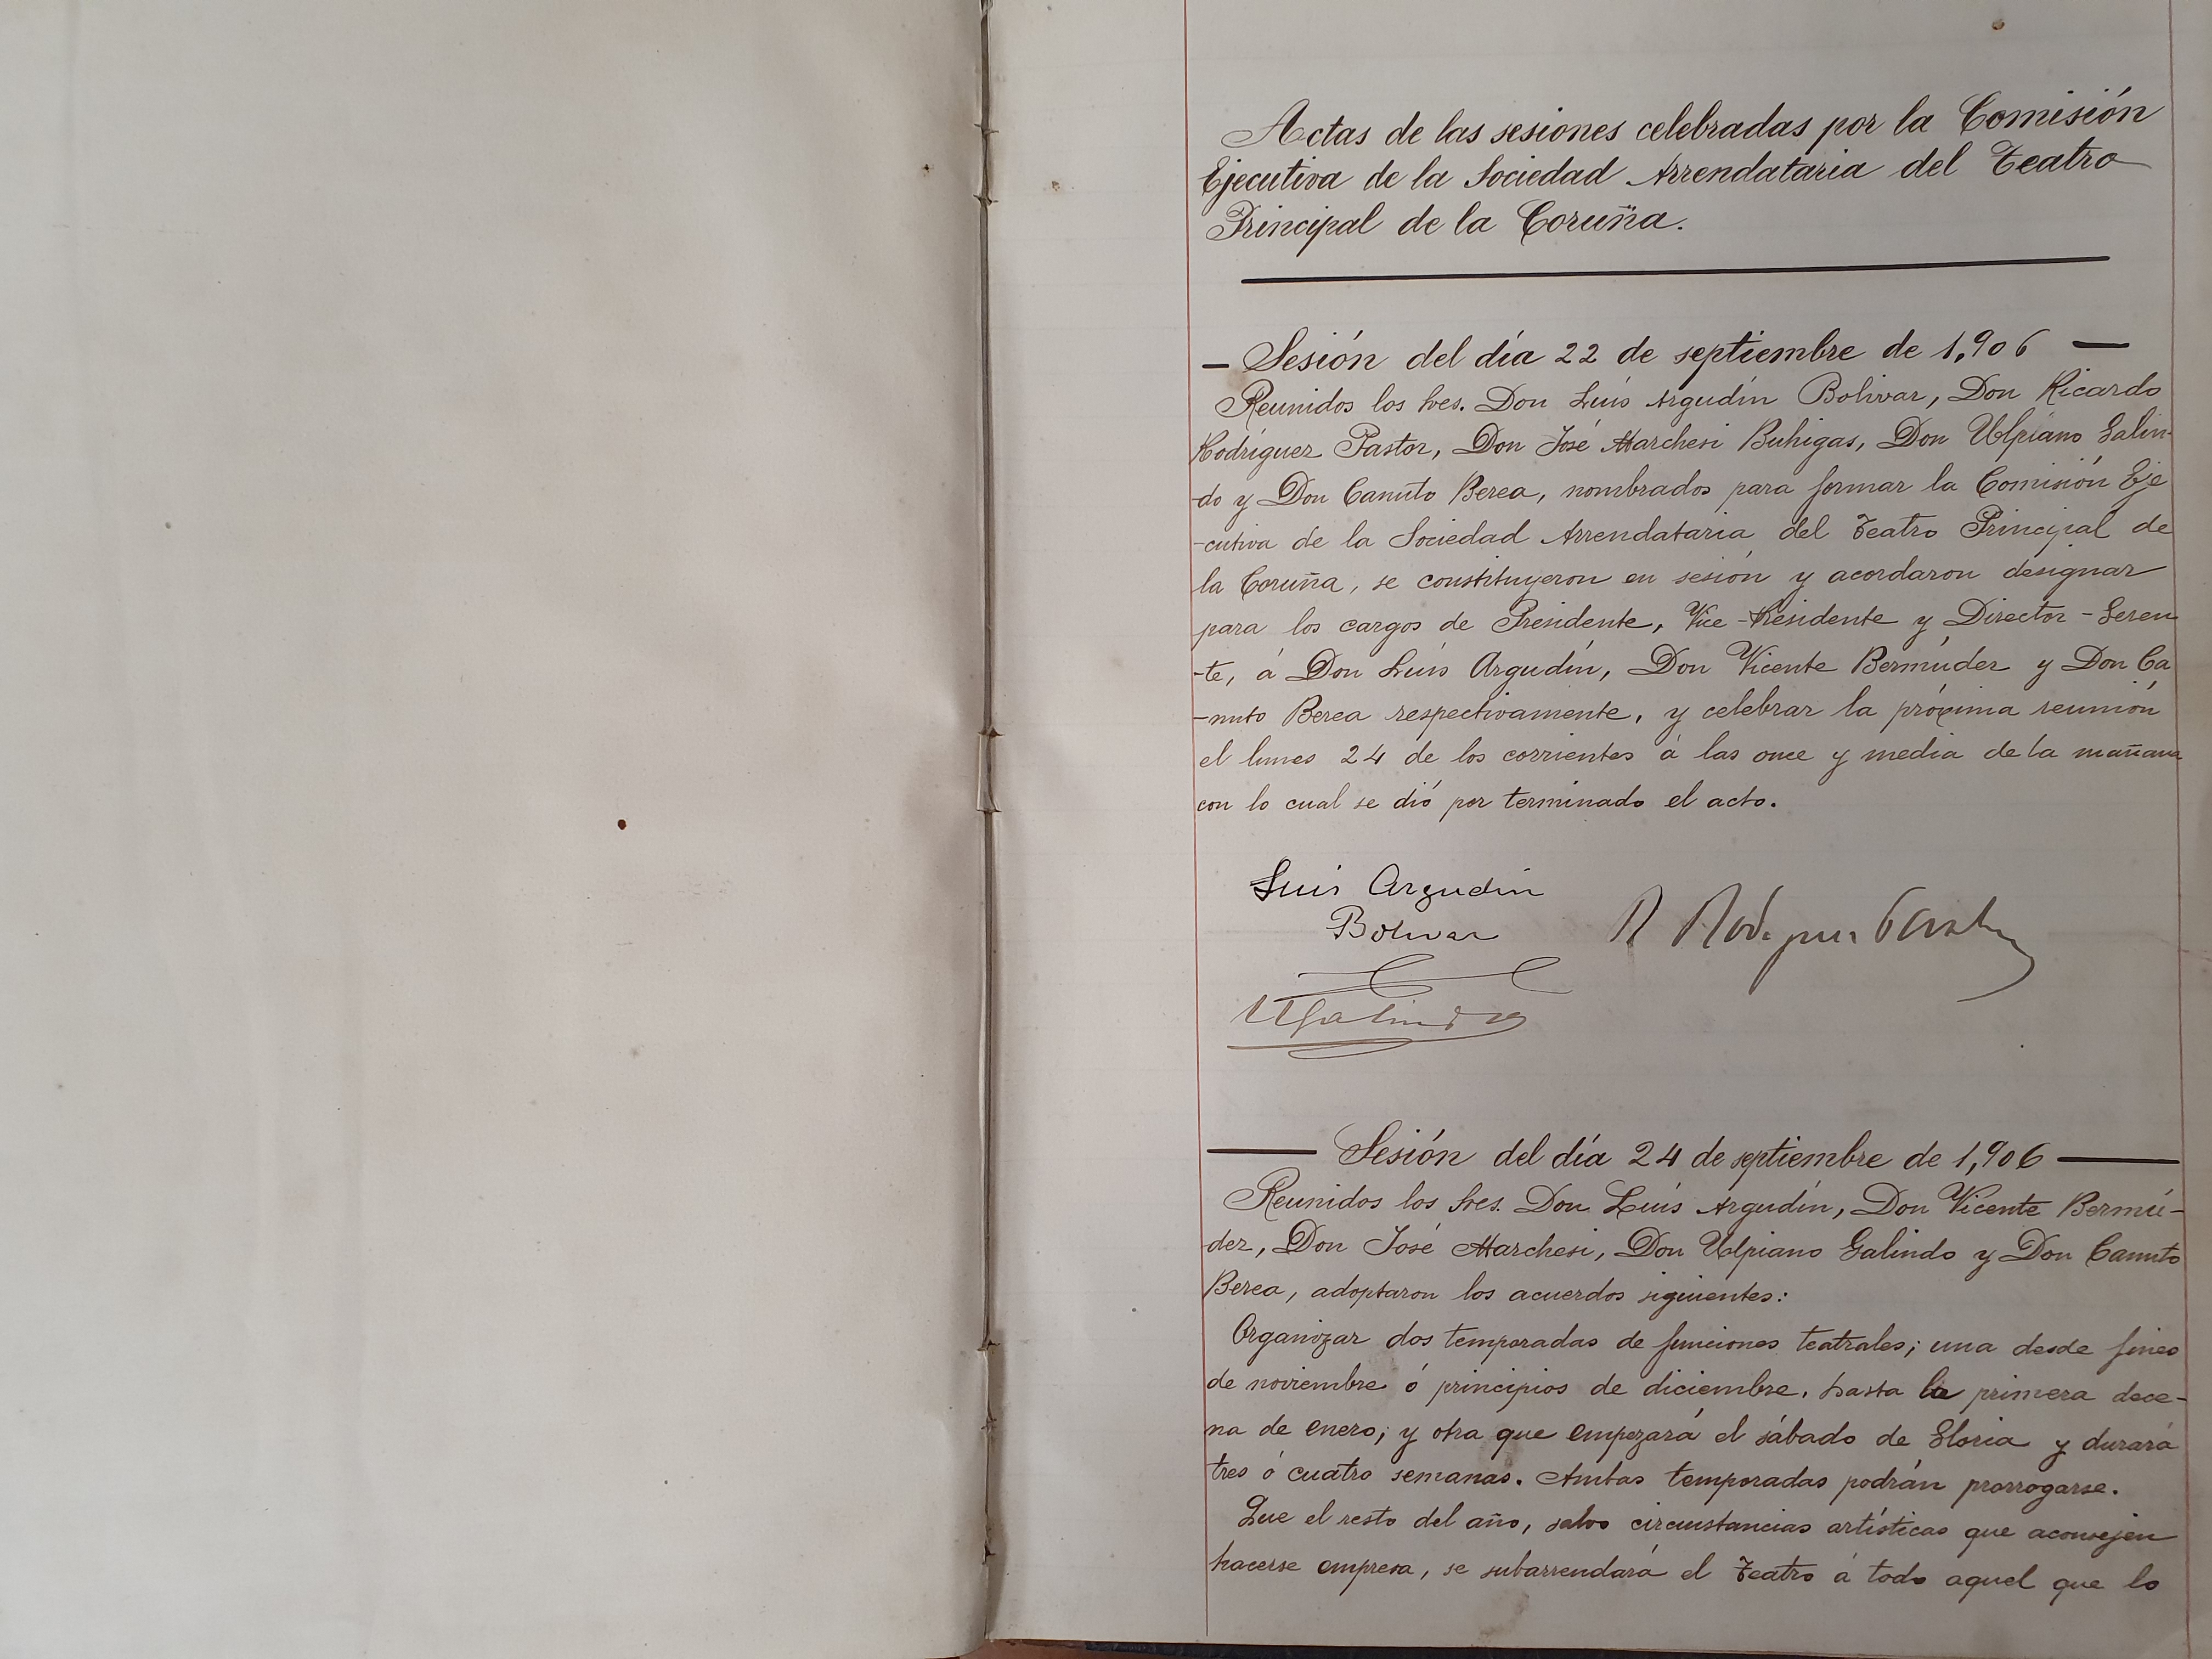 Actas de las sesiones celebradas por la Comisión
Ejecutiva de la Sociedad Arrendataria del Teatro
Principal de la Coruña.
— Sesión del día 22 de septiembre de 1,906 —
Reunidos los Sres. Don Luís Argudín Bolivar, Don Ricardo
Rodríguez Pastor, Don José Marchesi Buhigas, Don Ulpiano Galin-
-do y Don Canuto Berea, nombrados para formar la Comisión Eje
-cutiva de la Sociedad Arrendataria del Teatro Principal de
la Coruña, se constituyeron en sesión y acordaron designar
para los cargos de Presidente, Vice-Presidente y Director-Geren
-te, á Don Luís Argudín, Don Vicente Bermúdez y Don Ca
-nuto Berea respectivamente, y celebrar la próxima reunión
el lunes 24 de los corrientes á las once y media de la mañana
con lo cual se dió por terminado el acto.
Luis Argudin
Bolivar
R Rodriguez Pastor
U Galindo
— Sesión del día 24 de septiembre de 1,906 —
Reunidos los Sres. Don Luís Argudín, Don Vicente Bermú-
dez, Don José Marchesi, Don Ulpiano Galindo y Don Canuto
Berea, adoptaron los acuerdos siguientes:
Organizar dos temporadas de funciones teatrales; una desde fines
de noviembre ó principios de diciembre, hasta la primera dece-
na de enero; y otra que empezará el sábado de Gloria y durará
tres ó cuatro semanas. Ambas temporadas podrán prorrogarse.
Que el resto del año, salvo circunstancias artísticas que aconsejen
hacerse empresa, se subarrendará el Teatro á todo aquel que lo